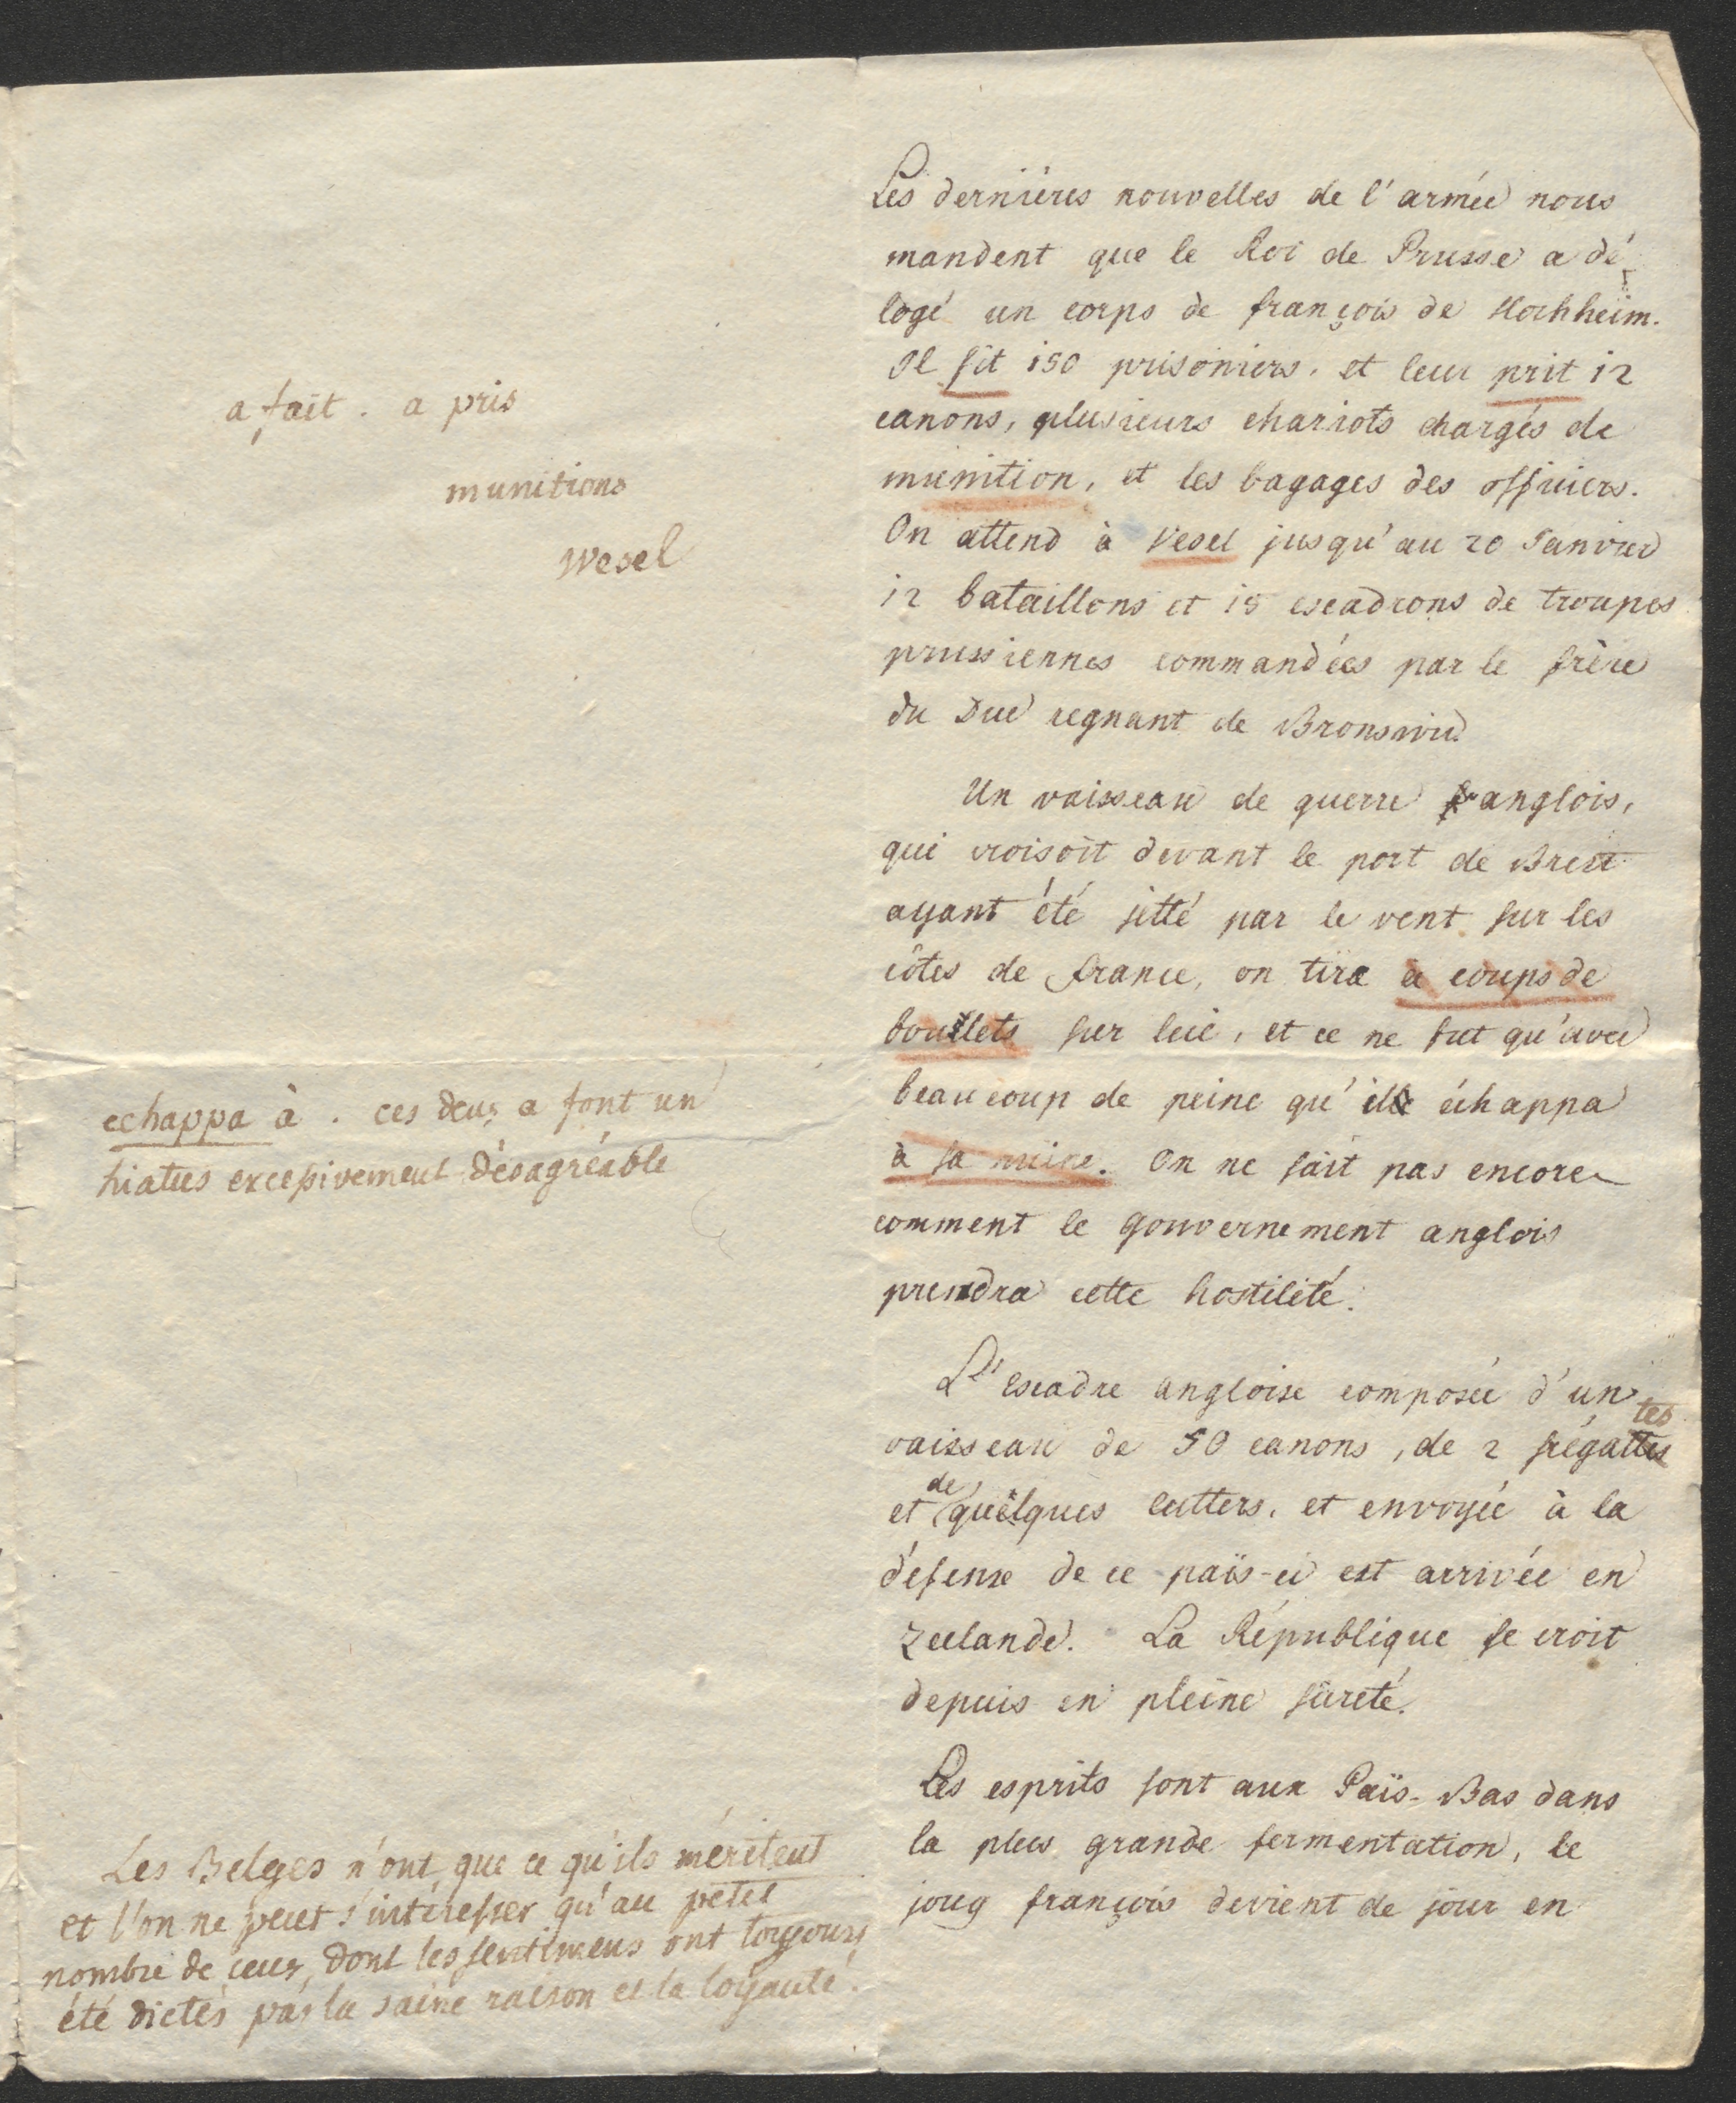 a fait . a pris
munitions
Wesel
echappa à . ces deux a font un
hiatus excessivement désagréable
Les Belges n'ont que ce qu'ils méritent
et l'on ne peut s'intéresser qu'au petit
nombre de ceux, dont les sentimens ont toujours
été dictés par la saine raison et la loyauté.
Les derniéres nouvelles de l'armée nous
mandent que le Roi de Prusse a dé
logé un corps de françois de Hochheim.
Il fit 150 prisoniers, et leur prit 12
canons, plusieurs chariots chargés de
munition, et les bagages des officiers.
On attend à Vesel jusqu'au 20 Janvier
12 bataillons et 15 escadrons de troupes
prussiennes commandées par le frère
du Duc regnant de Bronsvic.
Un vaisseau de guerre anglois,
qui croisoit devant le port de Brest
ayant été jetté par le vent sur les
côtes de france, on tira à coups de
boullets sur lui, et ce ne fut qu'avec
beaucoup de peine qu'il échappa
à sa ruine. On ne sait pas encore
comment le gouvernement anglois
prendra cette hostilité.
L'escadre angloise composée d'un
vaisseau de 50 canons, de 2 frégattes
tes
et de quelques cutters, et envoyée à la
défense de ce païs-ci est arrivée en
Zeelande. La République se croit
depuis en pleine sûreté.
Les esprits sont aux Païs-Bas dans
la plus grande fermentation, le
joug françois devient de jour en